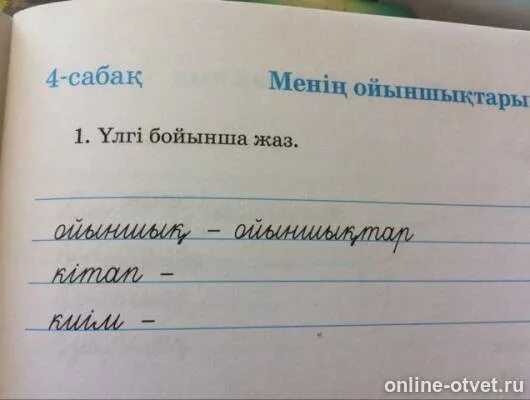 4-сабақ Менің ойыншықтары
1. Үлгі бойынша жаз.
ойыншық – ойыншықтар
кітап –
киім –
online-otvet.ru